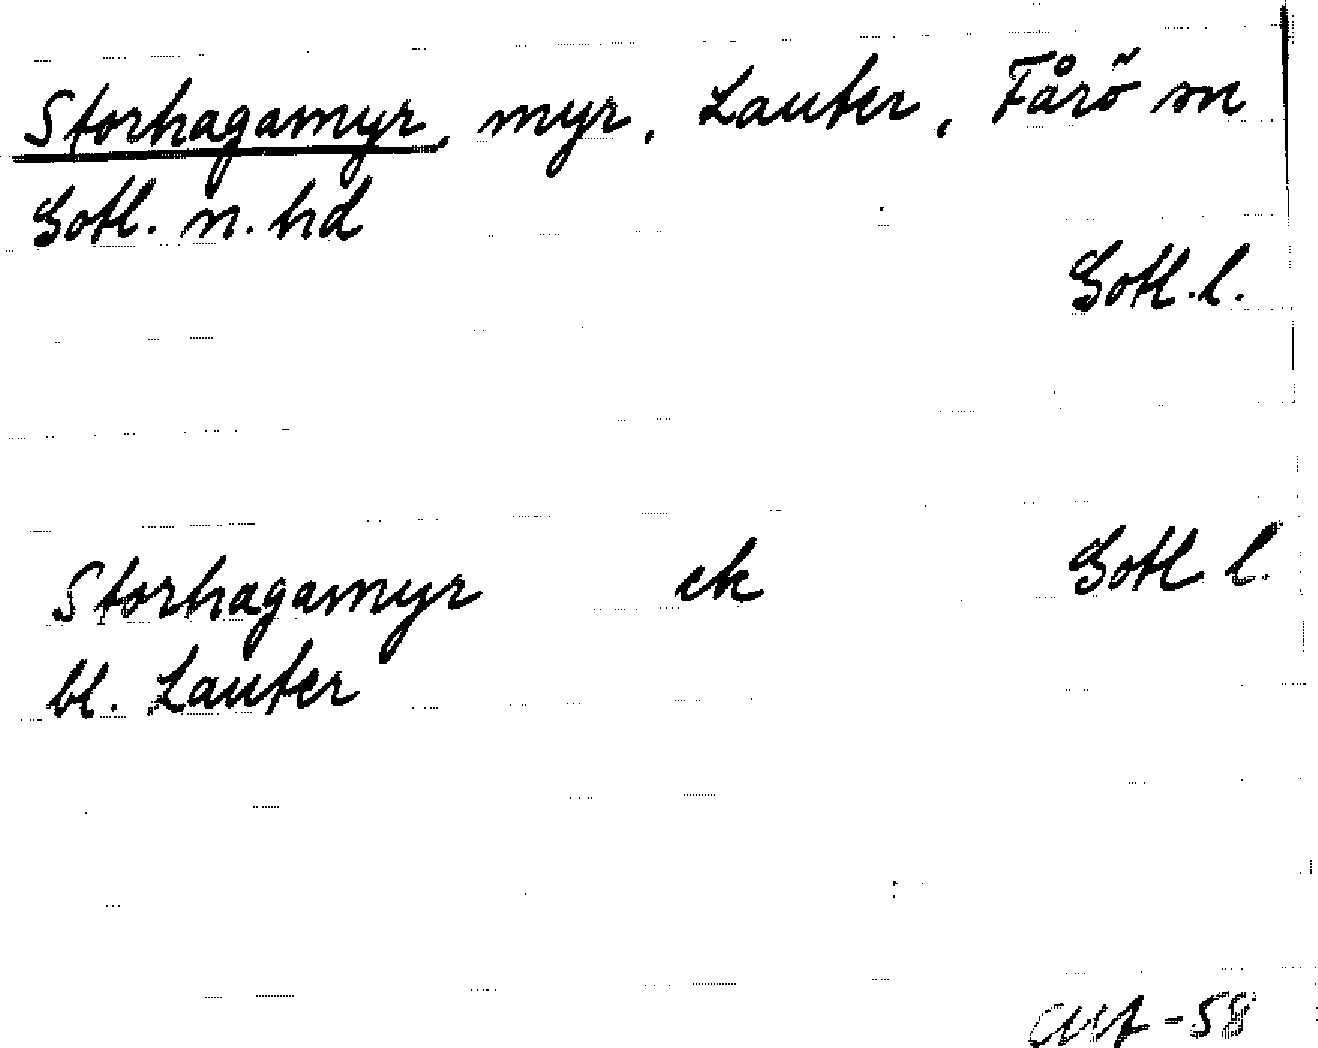 Storhagamyr, myr, Lauter, Fårö sn
Gotl. n. hd
Gotl. l.
Storhagamyr ek Gotl l.
bl. Lauter
-58